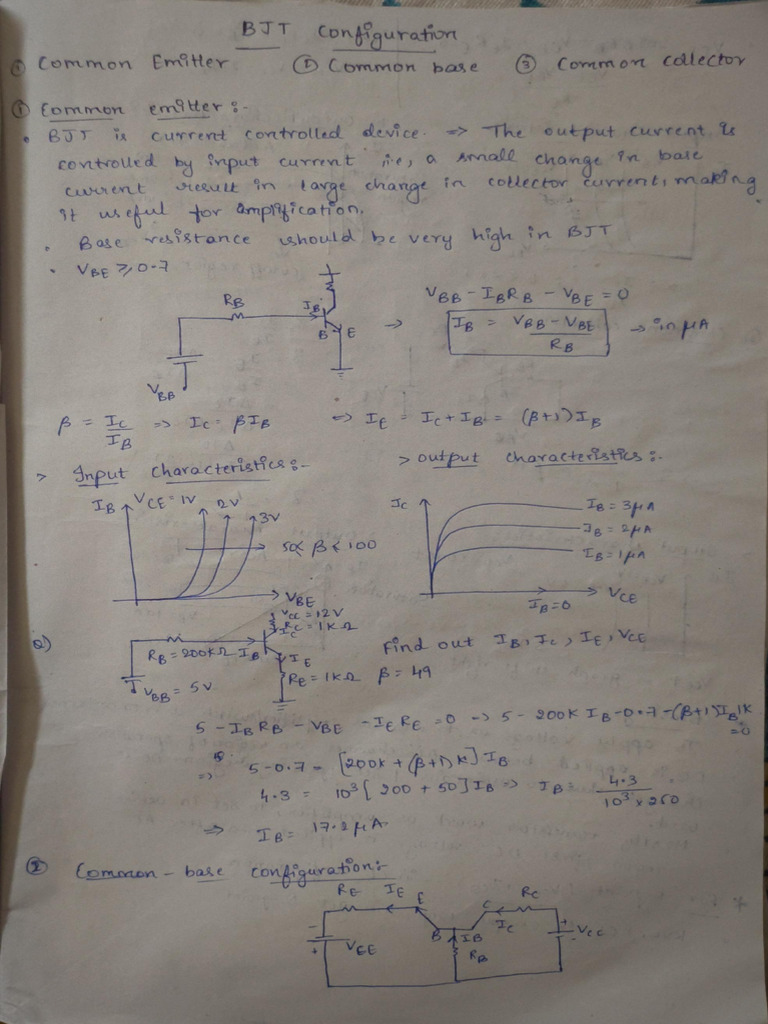 BJT Configuration
① Common Emitter ② Common base ③ Common collector
① Common emitter :-
• BJT is current controlled device. => The output current is
controlled by input current i.e, a small change in base
current result in large change in collector current, making
it useful for amplification.
• Base resistance should be very high in BJT
• VBE ≥ 0.7
RB IB B E VBB
VBB - IBRB - VBE = 0
IB = (VBB - VBE)/RB → in μA
β = IC/IB => IC = βIB => IE = IC + IB = (β+1)IB
> Input characteristics :- > Output characteristics :-
IB VCE = 1V 2V 3V
50< β < 100
VBE
IC IB = 3μA
IB = 2μA
IB = 1μA
IB = 0 VCE
Q) VCC = 12V
RC = 1KΩ
IC
RB = 200KΩ IB IE
RE = 1KΩ
VBB = 5V
Find out IB, IC, IE, VCE
β = 49
5 - IBRB - VBE - IERE = 0 => 5 - 200K IB - 0.7 - (β+1)IB 1K = 0
=> 5 - 0.7 = [200K + (β+1)K] IB
4.3 = 10³[200 + 50] IB => IB = 4.3/(10³ × 250)
=> IB = 17.2 μA.
② Common - base configuration :-
RE IE E C RC
- + VEE B IB IC + - VCC
RB